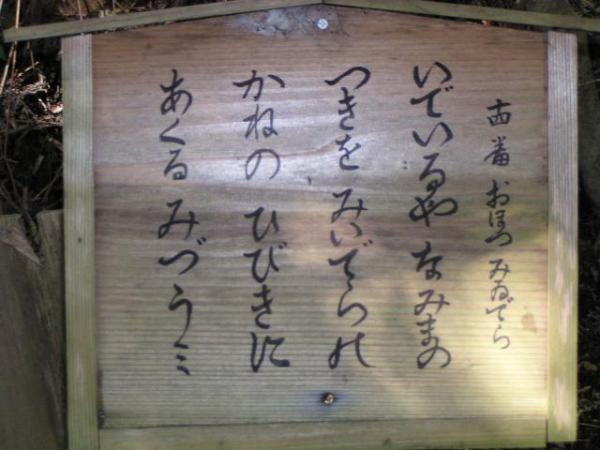 西番 おほつ みゐでら
いでいるや なみまの
つきを みいでらの
かねの ひびきに
あくる みづうミ